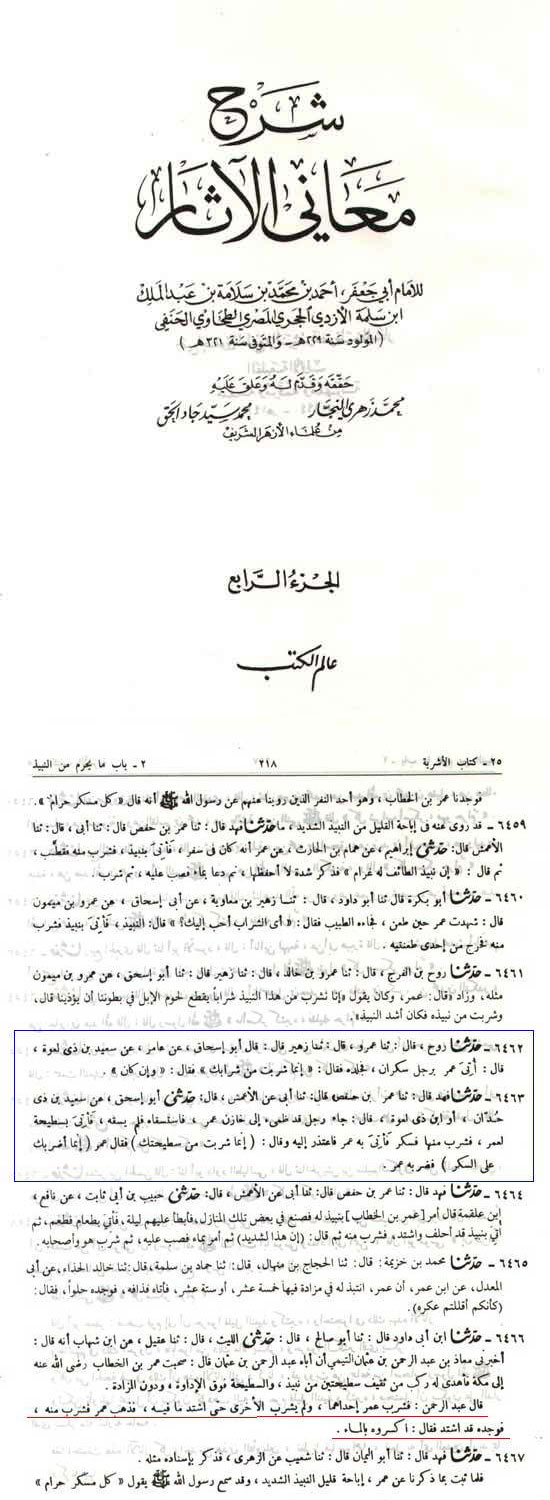 شرح
معاني الآثار
للإمام أبي جعفر، أحمد بن محمد بن سلامة بن عبد الملك
ابن سلمة الأزدي الحجري المصري الطحاوي الحنفي
(المولود سنة ٢٢٩ هـ - والمتوفى سنة ٣٢١ هـ)
حققه وقدم له وعلق عليه
محمد زهري النجار محمد سيد جاد الحق
من علماء الأزهر الشريف
الجزء الرابع
عالم الكتب
٢٥ - كتاب الأشربة ٢١٨ ٢ - باب ما يحرم من النبيذ
فوجدنا عمر بن الخطاب، وهو أحد النفر الذين روينا عنهم عن رسول الله ﷺ أنه قال « كل مسكر حرام ».
٦٤٥٩ - قد روى عنه في إباحة القليل من النبيذ الشديد، ما حدثنا فهد قال: ثنا عمر بن حفص قال: ثنا أبي، قال: ثنا
الأعمش قال: حدثني إبراهيم، عن همام بن الحارث، عن عمر أنه كان في سفر، فأتي بنبيذ، فشرب منه فقطب،
ثم قال: « إن نبيذ الطائف له غرام » فذكر شدة لا أحفظها، ثم دعا بماء فصب عليه، ثم شرب.
٦٤٦٠ - حدثنا أبو بكرة قال ثنا أبو داود، قال: ثنا زهير بن معاوية، عن أبي إسحاق، عن عمرو بن ميمون
قال: شهدت عمر حين طعن، فجاءه الطبيب فقال: « أي الشراب أحب إليك؟ » قال: النبيذ، فأتي بنبيذ فشرب
منه فخرج من إحدى طعنتيه.
٦٤٦١ - حدثنا روح بن الفرج، قال: ثنا عمرو بن خالد، قال: ثنا زهير قال: ثنا أبو إسحق، عن عمرو بن ميمون
مثله، وزاد «قال: عمر، وكان يقول «إنا نشرب من هذا النبيذ شراباً يقطع لحوم الإبل في بطوننا أن يؤذينا قال،
وشربت من نبيذه فكان أشد النبيذ».
٦٤٦٢ - حدثنا روح، قال: ثنا عمرو، قال: ثنا زهير قال: قال أبو إسحاق، عن عامر، عن سعيد بن ذي لعوة،
قال: أتي عمر برجل سكران، فجلده فقال: « إنما شربت من شرابك » فقال: « وإن كان ».
٦٤٦٣ - حدثنا فهد قال: ثنا عمر بن حفص قال: ثنا أبي عن الأعمش، قال: حدثني أبو إسحق، عن سعيد بن ذي
حُدَّان، أو ابن ذي لعوة، قال: جاء رجل قد ظمئ إلى خازن عمر، فاستسقاه فلم يسقه، فأتي بسطيحة
لعمر، فشرب منها فسكر فأتي به عمر فاعتذر إليه وقال: ( إنما شربت من سطيحتك ) فقال عمر ( إنما أضربك
على السكر ) فضربه عمر.
٦٤٦٤ - حدثنا فهد قال: ثنا عمر بن حفص قال: ثنا أبي عن الأعمش، قال: حدثني حبيب بن أبي ثابت، عن نافع،
ابن علقمة قال أمر [عمر بن الخطاب] بنبيذ له فصنع في بعض تلك المنازل، فأبطأ عليهم ليلة، فأتي بطعام فطعم، ثم
أتي بنبيذ قد أخلف واشتد، فشرب منه ثم قال: (إن هذا لشديد) ثم أمر بماء فصب عليه، ثم شرب هو وأصحابه.
٦٤٦٥ - حدثنا محمد بن خزيمة: قال: ثنا الحجاج بن منهال، قال: ثنا حماد بن سلمة، قال: ثنا خالد الحذاء، عن أبي
المعدل، عن ابن عمر، أن عمر، انتبذ له في مزادة فيها خمسة عشر، أو ستة عشر، فأتاه فذاقه، فوجده حلواً، فقال:
(كأنكم أقللتم عكره).
٦٤٦٦ - حدثنا ابن أبي داود قال: ثنا أبو صالح، قال: حدثني الليث، قال: ثنا عقيل، عن ابن شهاب أنه قال:
أخبرني معاذ بن عبد الرحمن بن عثمان التيمي أن أباه عبد الرحمن بن عثمان قال: صحبت عمر بن الخطاب رضى الله عنه
إلى مكة فأهدى له ركب من ثقيف سطيحتين من نبيذ، والسطيحة فوق الإداوة، ودون المزادة.
قال عبد الرحمن: فشرب عمر إحداهما، ولم يشرب الأخرى حتى اشتد ما فيه، فذهب عمر فشرب منه،
فوجده قد اشتد فقال: اكسروه بالماء.
٦٤٦٧ - حدثنا فهد قال: ثنا أبو اليمان قال: ثنا شعيب عن الزهري، فذكر بإسناده مثله.
فلما ثبت بما ذكرنا عن عمر، إباحة قليل النبيذ الشديد، وقد سمع رسول الله ﷺ يقول «كل مسكر حرام »